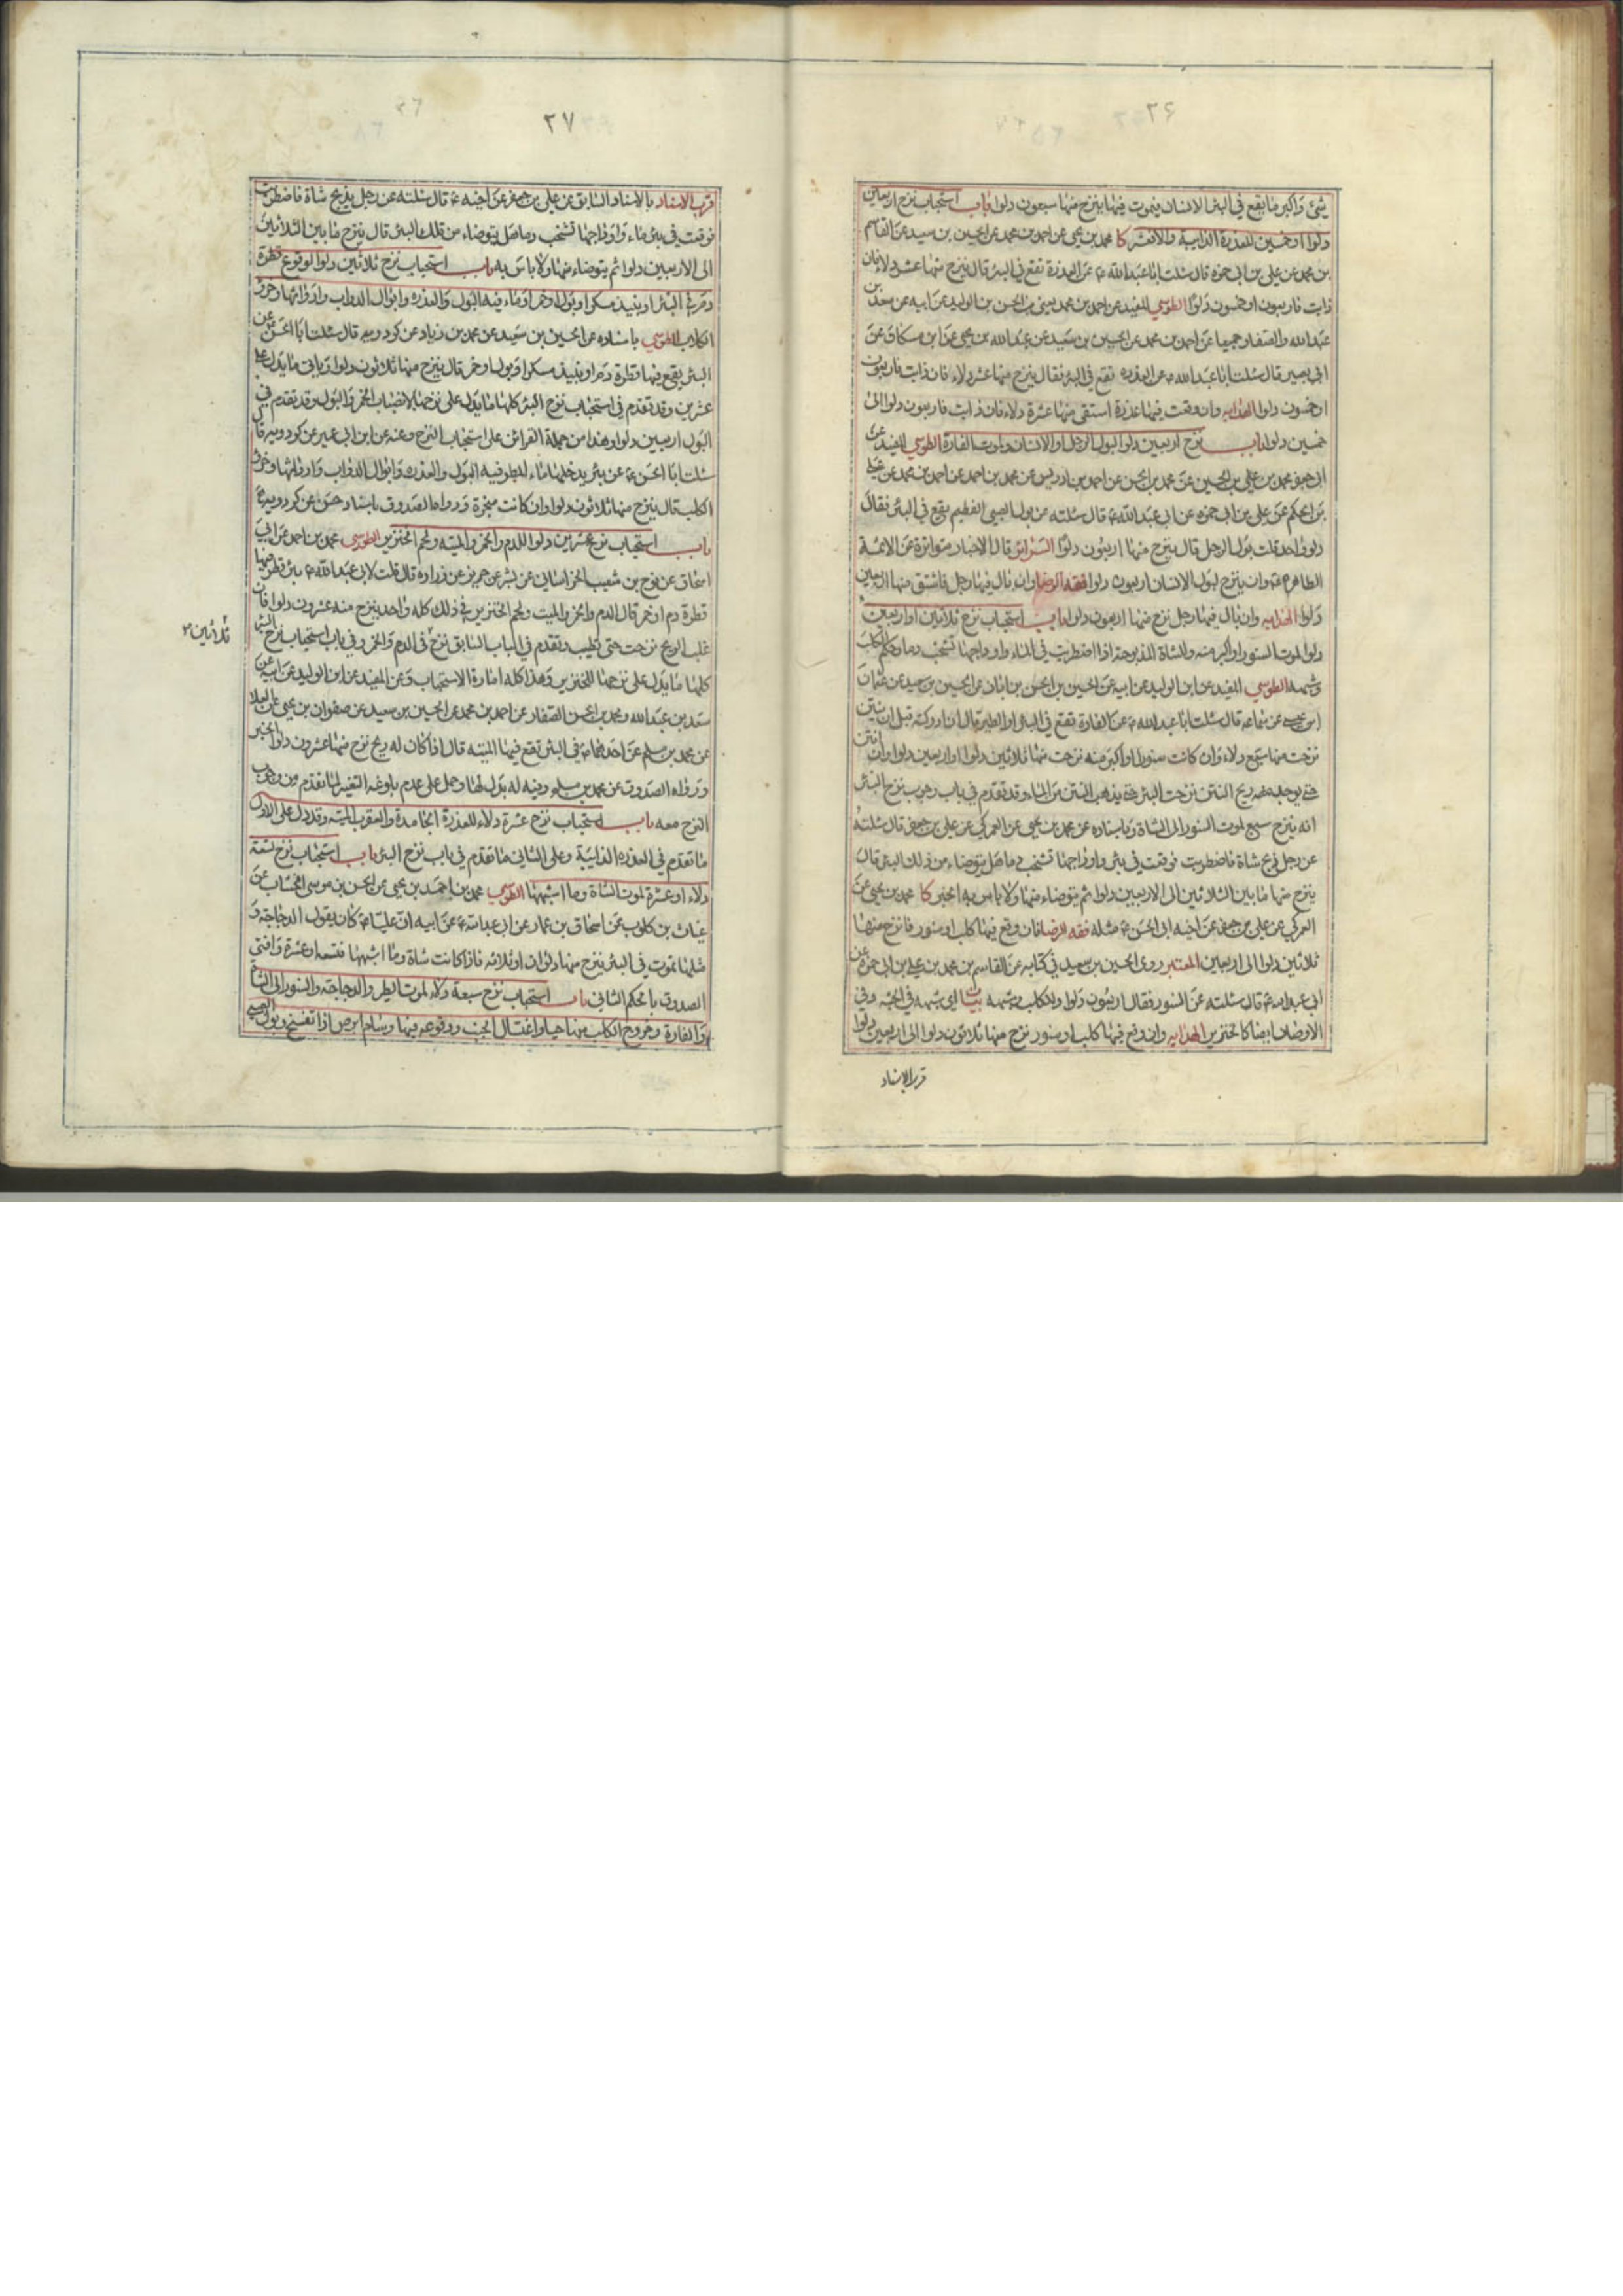 ۳۶
شیء واکبر ما یقع فی البئر الانسان فیموت فیها ینزح منها سبعون دلوا باب استحباب نزح اربعین
دلوا او خمسین للعذرة الذایبة والاکثر کا محمد بن یحیی عن احمد بن محمد عن الحسین بن سعید عن القاسم
بن محمد عن علی بن ابی حمزه قال سئلت ابا عبد الله ع عن العذرة تقع فی البئر قال ینزح منها عشر دلاء فان
ذابت فاربعون او خمسون دلوا الطوسی المفید عن احمد بن محمد یعنی بن الحسن بن الولید عن ابیه عن سعد بن
عبد الله والصفار جمیعا عن احمد بن محمد عن الحسین بن سعید عن عبد الله بن یحیی عن ابن مسکان عن
ابی بصیر قال سئلت ابا عبد الله ع عن العذره تقع فی البئر فقال ینزح منها عشر دلاء فان ذابت فاربعون
او خمسون دلوا الهدایه وان وقعت فیها عذرة استقی منها عشرة دلاء فان ذابت فاربعون دلوا الی
خمسین دلوا باب نزح اربعین دلوا لبول الرجل او الانسان ولموت الفارة الطوسی المفید عن
ابی جعفر محمد بن علی بن الحسین عن محمد بن الحسن عن احمد بن ادریس عن محمد بن احمد عن احمد بن محمد عن علی
بن الحکم عن علی بن ابی حمزه عن ابی عبد الله ع قال سئلته عن بول الصبی الفطیم یقع فی البئر فقال
دلو واحد قلت بول الرجل قال ینزح منها اربعون دلوا السرائر قال الاخبار متواترة عن الائمة
الطاهره ع بان ینزح لبول الانسان اربعون دلوا فقه الرضا وان بال فیها رجل فاستق منها اربعین
دلوا الهدایه وان بال فیها رجل نزح منها اربعون دلوا باب استحباب نزح ثلاثین او اربعین
دلوا لموت السنور او اکبر منه والشاة المذبوحة اذا اضطربت فی الماء واوداجها تشخب دما وحکم الکلب
وشبهه الطوسی المفید عن ابن الولید عن ابیه عن الحسین بن الحسن بن ابان عن الحسین بن سعید عن عثمان
ابن عیسی عن سماعه قال سئلت ابا عبد الله ع عن الفارة تقع فی البئر او الطیر قال ان ادرکته قبل ان ینتن
نزحت منها سبع دلاء وان کانت سنورا او اکبر منه نزحت منها ثلاثین دلوا او اربعین دلوا وان انتن
حتی یوجد ریح النتن نزحت البئر حتی یذهب النتن من الماء وقد تقدم فی باب وجوب نزح البئر
انه ینزح سبع لموت السنور الی الشاة وباسناده عن محمد بن یحیی عن العمرکی عن علی بن جعفر قال سئلته
عن رجل ذبح شاة فاضطربت فوقعت فی بئر واوداجها تشخب دما هل یتوضاء من ذلک البئر قال
ینزح منها ما بین الثلاثین الی الاربعین دلوا ثم یتوضاء منها ولا باس به الخبر کا محمد بن یحیی عن
العمرکی عن علی بن جعفر عن اخیه ابی الحسن ع مثله فقه الرضا فان وقع فیها کلب او سنور فانزح منها
ثلاثین دلوا الی اربعین المعتبر روی الحسین بن سعید فی کتابه عن القاسم بن محمد بن علی بن ابی حمزه عن
ابی عبد الله ع قال سئلته عن السنور فقال اربعون دلوا وللکلب وشبهه بیان ای شبهه فی الجثه وفی
الاوصاف ایضا کالخنزیر الهدایه وان وقع فیها کلب او سنور نزح منها ثلاثون دلوا الی اربعین دلوا
قرب الاسناد
۳۷
قرب الاسناد بالاسناد السابق عن علی بن جعفر عن اخیه ع قال سئلته عن رجل یذبح شاة فاضطربت
فوقعت فی بئر ماء واوداجها تشخب دما هل یتوضاء من تلک البئر قال ینزح ما بین الثلاثین
الی الاربعین دلوا ثم یتوضاء منها ولا باس به باب استحباب نزح ثلاثین دلوا لوقوع قطرة
دم فی البئر او نبیذ مسکر او بول او خمر او ماء فیه البول والعذره وابوال الدواب وارواثها وخرء
الکلاب الطوسی باسناده عن الحسین بن سعید عن محمد بن زیاد عن کردویه قال سئلت ابا الحسن عن
البئر یقع فیها قطرة دم او نبیذ مسکر او بول او خمر قال ینزح منها ثلاثون دلوا ویاتی ما یدل علی
عشرین وقد تقدم فی استحباب نزح البئر کلها ما یدل علی نزحها لانصباب الخمر والبول وقد تقدم فی
البول اربعین دلوا وهذا من جملة القرائن علی استحباب النزح وعنه عن ابن ابی عمیر عن کردویه قال
سئلت ابا الحسن ع عن بئر یدخلها ماء المطر فیه البول والعذره وابوال الدواب وارواثها وخرء
الکلب قال ینزح منها ثلاثون دلوا وان کانت مبخرة ورواها الصدوق باسناد حسن عن کردویه ع
باب استحباب نزح عشرین دلوا للدم والخمر والمیته ولحم الخنزیر الطوسی محمد بن احمد عن ابی
اسحاق عن نوح بن شعیب الخراسانی عن بشیر عن حریز عن زراره قال قلت لابی عبد الله ع بئر قطر فیها
قطرة دم او خمر قال الدم والخمر والمیت ولحم الخنزیر فی ذلک کله واحد ینزح منه عشرون دلوا فان
غلب الریح نزحت حتی تطیب وتقدم فی الباب السابق نزح ۲ فی الدم والخمر وفی باب استحباب نزح البئر
ثلاثین ۲
کلها ما یدل علی نزحها للخنزیر وهذا کله امارة الاستحباب وعن المفید عن ابن الولید عن ابیه عن
سعد بن عبد الله ومحمد بن الحسن الصفار عن احمد بن محمد عن الحسین بن سعید عن صفوان بن یحیی عن العلا
عن محمد بن مسلم عن احدهما ع فی البئر تقع فیها المیتة قال اذا کان له ریح نزح منها عشرون دلوا الخبر
ورواه الصدوق عن محمد بن مسلم وفیه له بدل لها وحمل علی عدم بلوغه التغییر لما تقدم من وجوب
النزح معه باب استحباب نزح عشرة دلاء للعذرة الجامدة والعقرب المیته وقد دل علی الاول
ما تقدم فی العذره الذایبة وعلی الثانی ما تقدم فی باب نزح البئر باب استحباب نزح تسعة
دلاء او عشرة لموت الشاة وما اشبهها الطوسی محمد بن احمد بن یحیی عن الحسن بن موسی الخشاب عن
غیاث بن کلوب عن اسحاق بن عمار عن ابی عبد الله ع عن ابیه ان علیا ع کان یقول الدجاجة و
مثلها تموت فی البئر ینزح منها دلوان او ثلاثه فاذا کانت شاة وما اشبهها فتسعه او عشرة وافتی
الصدوق بالحکم الثانی باب استحباب نزح سبعة دلاء لموت الطیر والدجاجة والسنور الی الشاة
والفارة وخروج الکلب منها حیا واغتسال الجنب ووقوعه فیها وسام ابرص اذا تفسخ وبول الصبی